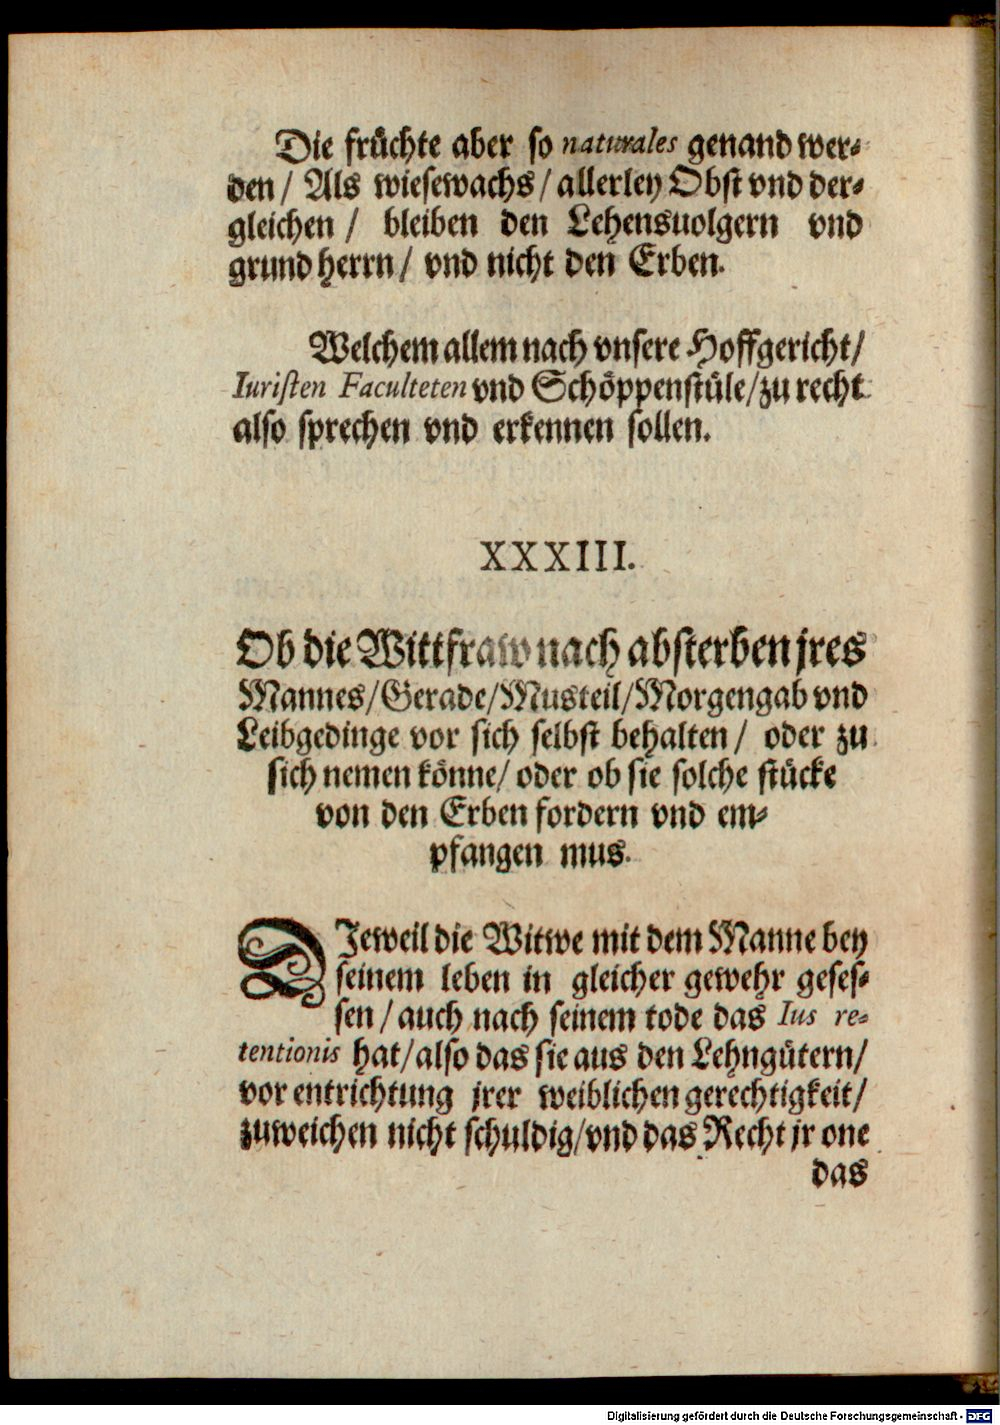 Die früchte aber so naturales genand wer-
den / Als wiesewachs / allerley Obst vnd der-
gleichen / bleiben den Lehensuolgern vnd
grund herrn / vnd nicht den Erben.
Welchem allem nach vnsere Hoffgericht /
Iuristen Faculteten vnd Schöppenstüle / zu recht
also sprechen vnd erkennen sollen.
XXXIII.
Ob die Wittfraw nach absterben jres
Mannes / Gerade / Musteil / Morgengab vnd
Leibgedinge vor sich selbst behalten / oder zu
sich nemen könne / oder ob sie solche stücke
von den Erben fordern vnd em-
pfangen mus.
DJeweil die Witwe mit dem Manne bey
seinem leben in gleicher gewehr geses-
sen / auch nach seinem tode das Ius re-
tentionis hat / also das sie aus den Lehngütern /
vor entrichtung jrer weiblichen gerechtigkeit /
zuweichen nicht schuldig / vnd das Recht jr one
das
Digitalisierung gefördert durch die Deutsche Forschungsgemeinschaft - DFG